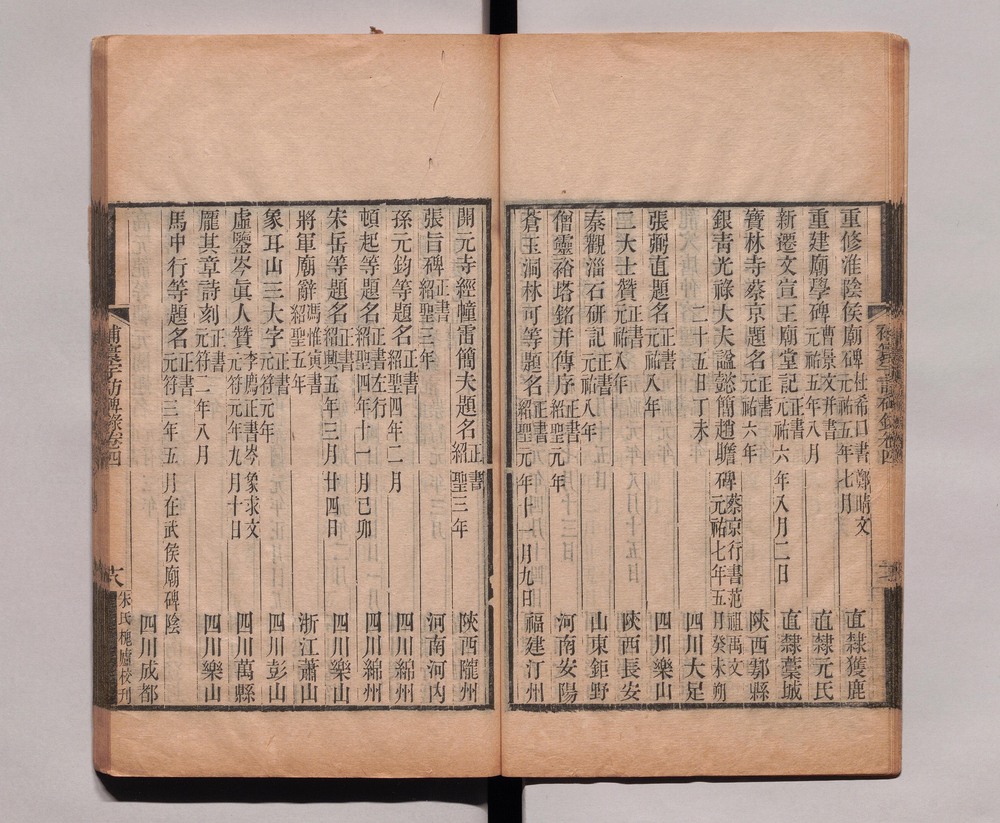 重修淮陰侯廟碑 杜希口書 鄭晴文 元祐五年七月 直隸獲鹿
重建廟學碑 曹景文并書 元祐五年八月 直隸元氏
新遷文宣王廟堂記 正書 元祐六年八月二日 直隸藁城
寶林寺蔡京題名 正書 元祐六年 陝西鄠縣
銀青光祿大夫諡懿簡趙瞻碑 蔡京行書 范祖禹文 元祐七年五月癸未朔
二十五日丁未 四川大足
張弼直題名 正書 元祐八年 四川樂山
二大士贊 正書 元祐八年 陝西長安
秦觀淄石研記 元祐八年 山東鉅野
僧靈裕塔銘并傳序 正書 紹聖元年 河南安陽
蒼玉洞林可等題名 正書 紹聖元年十一月九日 福建汀州
開元寺經幢雷簡夫題名 正書 紹聖三年 陝西隴州
張旨碑 正書 紹聖三年 河南河內
孫元鈞等題名 正書 紹聖四年二月 四川綿州
頓起等題名 正書左行 紹聖四年十一月己卯 四川綿州
宋岳等題名 正書 紹興五年三月廿四日 四川樂山
將軍廟辭 馮惟寅書 紹聖五年 浙江蕭山
象耳山三大字 正書 元符元年 四川彭山
虛鑒岑真人贊 李廌正書 岑象求文 元符元年九月十日 四川萬縣
龐其章詩刻 正書 元符二年八月 四川樂山
馬中行等題名 正書 元符三年五月在武侯廟碑陰
四川成都
補寰宇訪碑錄卷四
朱氏槐廬校刊